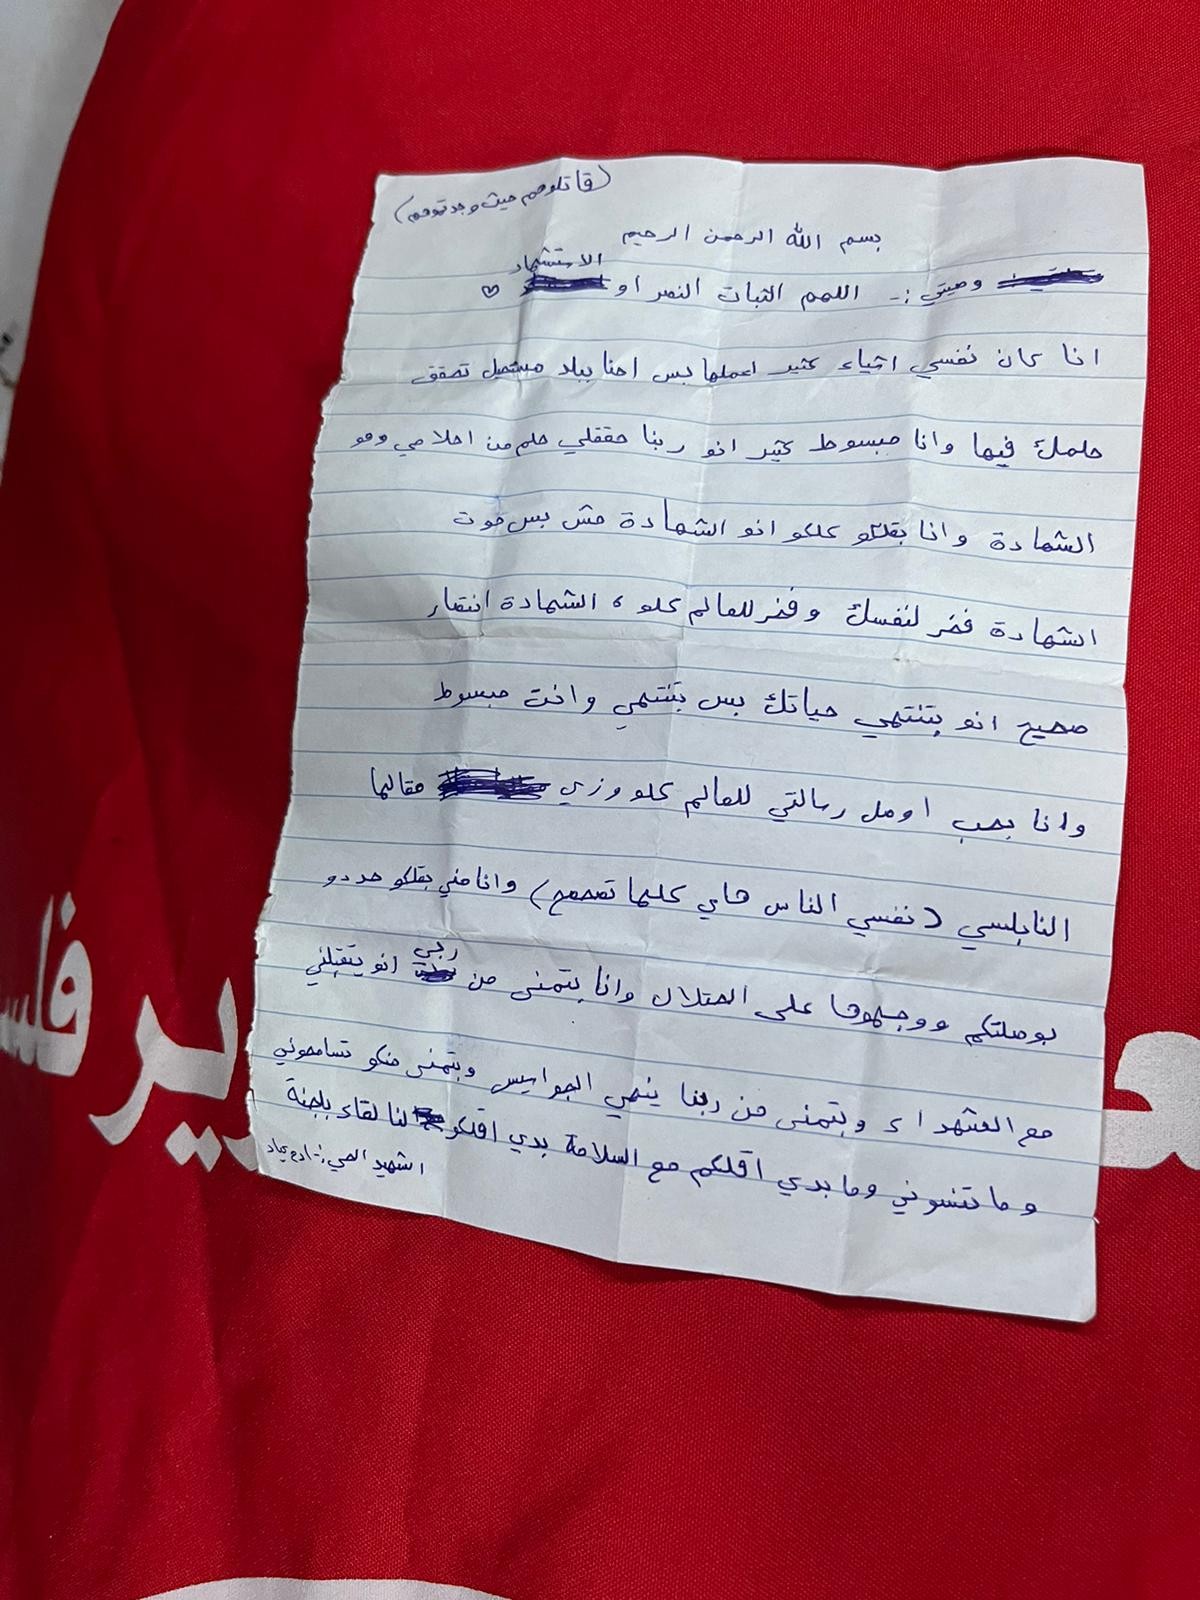 (قاتلوهم حيث وجدتموهم)
بسم الله الرحمن الرحيم
الاستشهاد
وصيتي :- اللهم الثبات النصر او ♡
انا كان نفسي اشياء كثير اعملها بس احنا ببلد مستحيل تحقق
حلمك فيها وانا مبسوط كثير انو ربنا حققلي حلم من احلامي وهو
الشهادة وانا بقلكو كلكو انو الشهادة مش بس موت
الشهادة فخر لنفسك وفخر للعالم كلو ، الشهادة انتصار
صحيح انو بتنتهي حياتك بس بتنتهي وانت مبسوط
وانا بحب اوصل رسالتي للعالم كلو وزي مقالها
النابلسي (نفسي الناس هاي كلها تصحصح) وانا مني بقلكو حددو
بوصلتكم ووجهوها على احتلال وانا بتمنى من ربي انو يتقبلني
مع الشهداء وبتمنى من ربنا ينهي الجواسيس وبتمنى منكو تسامحوني
وما تنسوني وما بدي اقلكم مع السلامة بدي اقلكو لنا لقاء بلجنة
اشهيد الحي :- ادم عياد
ير فلس